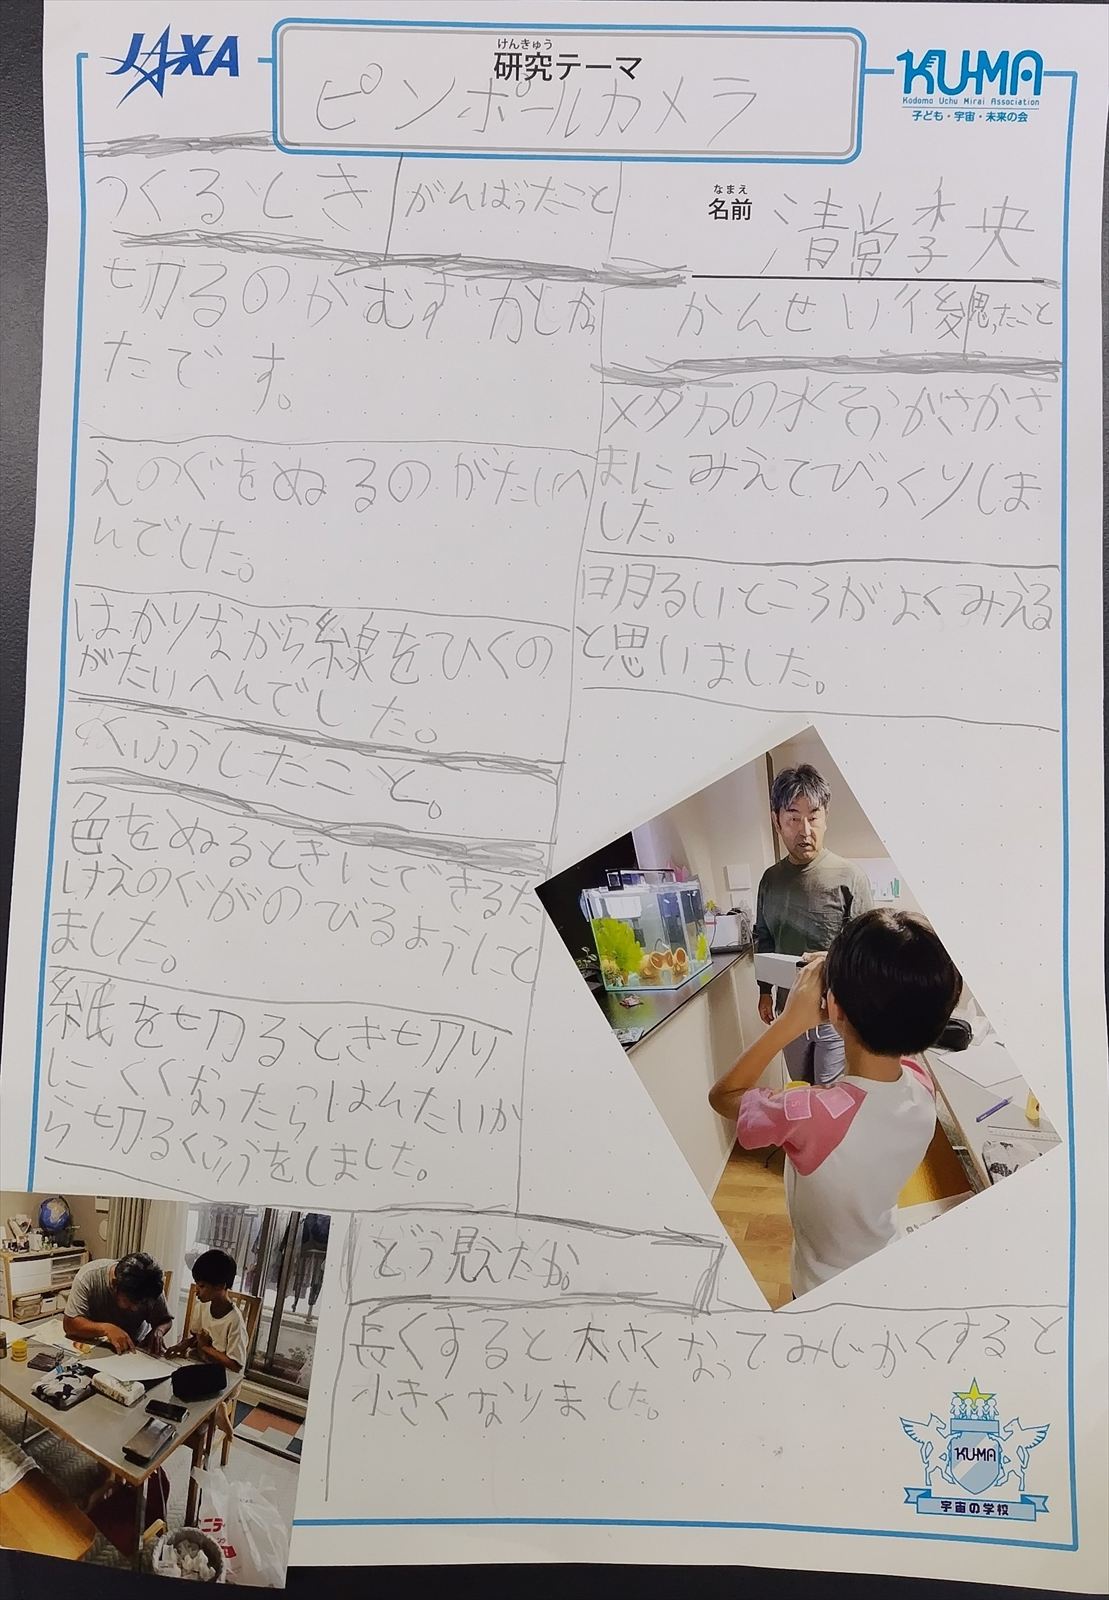 JAXA
けんきゅう
研究テーマ
ピンホールカメラ
KU-MA
Kodomo Uchu Mirai Association
子ども・宇宙・未来の会
なまえ
名前
つくるとき
がんばったこと
切るのがむずかしかっ
たです。
えのぐをぬるのがたいへ
んでした。
はかりながら線をひくの
がたいへんでした。
くふうしたこと。
色をぬるときにできるだ
けえのぐがのびるようにと
ました。
紙を切るとき切り
にくくなったらはんたいか
ら切るくふうをしました。
かんせい後思ったこと
メダカの水そうがさかさ
まにみえてびっくりしま
した。
明るいところがよくみえる
と思いました。
どう見えたか。
長くすると大きくなってみじかくすると
小さくなりました。
KU-MA
宇宙の学校